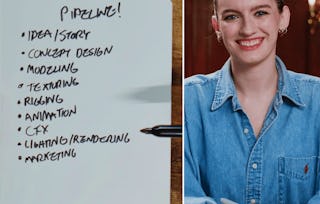 PIPELINE!
• IDEA/STORY
• CONCEPT DESIGN
• MODELING
• TEXTURING
• RIGGING
• ANIMATION
• CFX
• LIGHTING/RENDERING
• MARKETING